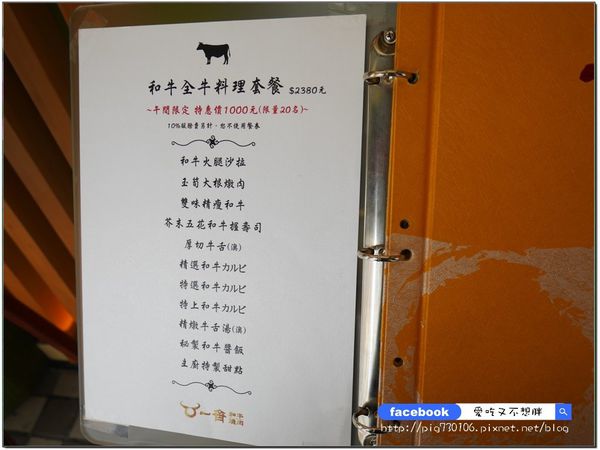 和牛全牛料理套餐 $2380元
~午間限定 特惠價1000元(限量20名)~
10%服務費另計，恕不使用餐券
和牛火腿沙拉
玉筍大根燉肉
雙味精瘦和牛
芥末五花和牛握壽司
厚切牛舌(澳)
精選和牛カルビ
特選和牛カルビ
特上和牛カルビ
精燉牛舌湯(澳)
秘製和牛醬飯
主廚特製甜點
一齋 和牛燒肉
facebook 愛吃又不想胖
http://pig730106.pixnet.net/blog